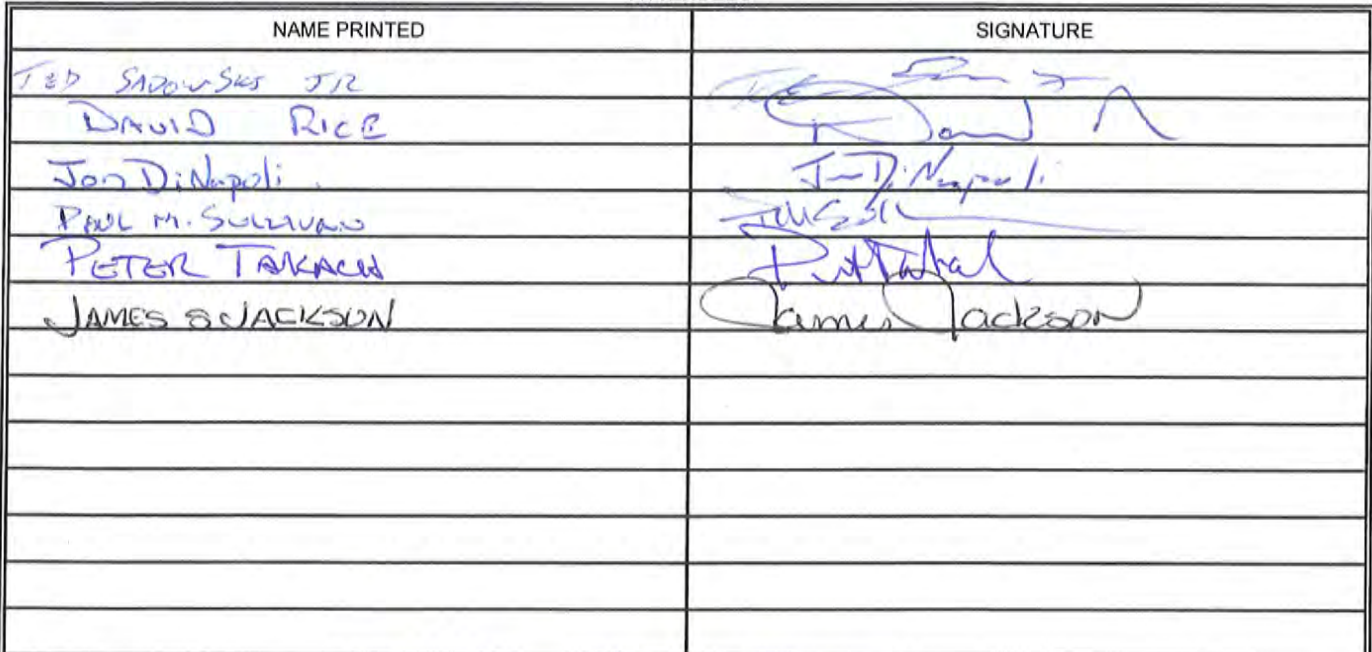 NAME PRINTED SIGNATURE
TED SADOWSKI JR
DAVID RICE David R
Jon DiNapoli Jon DiNapoli
PAUL M. SULLIVAN
PETER TAKACH
JAMES S JACKSON James Jackson